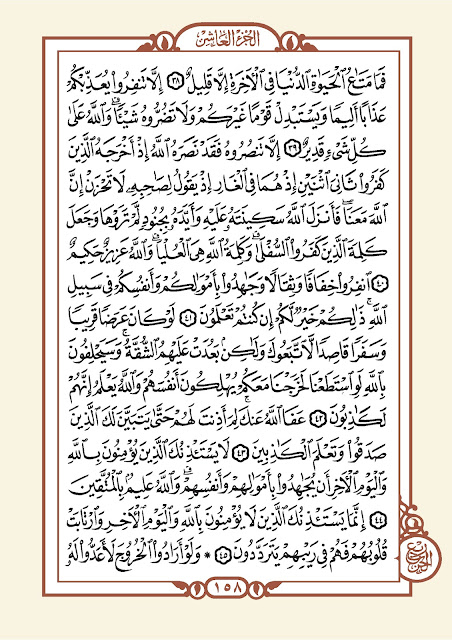 الجزء العاشر
فَمَا مَتَٰعُ ٱلْحَيَوٰةِ ٱلدُّنْيَا فِي ٱلْأٓخِرَةِ إِلَّا قَلِيلٌ ٣٨ إِلَّا تَنفِرُوا۟ يُعَذِّبْكُمْ
عَذَابًا أَلِيمًا وَيَسْتَبْدِلْ قَوْمًا غَيْرَكُمْ وَلَا تَضُرُّوهُ شَيْـًٔا ۗ وَٱللَّهُ عَلَىٰ
كُلِّ شَيْءٍ قَدِيرٌ ٣٩ إِلَّا تَنصُرُوهُ فَقَدْ نَصَرَهُ ٱللَّهُ إِذْ أَخْرَجَهُ ٱلَّذِينَ
كَفَرُوا۟ ثَانِيَ ٱثْنَيْنِ إِذْ هُمَا فِي ٱلْغَارِ إِذْ يَقُولُ لِصَٰحِبِهِۦ لَا تَحْزَنْ إِنَّ
ٱللَّهَ مَعَنَا ۖ فَأَنزَلَ ٱللَّهُ سَكِينَتَهُۥ عَلَيْهِ وَأَيَّدَهُۥ بِجُنُودٍ لَّمْ تَرَوْهَا وَجَعَلَ
كَلِمَةَ ٱلَّذِينَ كَفَرُوا۟ ٱلسُّفْلَىٰ ۗ وَكَلِمَةُ ٱللَّهِ هِيَ ٱلْعُلْيَا ۗ وَٱللَّهُ عَزِيزٌ حَكِيمٌ
٤٠ ٱنفِرُوا۟ خِفَافًا وَثِقَالًا وَجَٰهِدُوا۟ بِأَمْوَٰلِكُمْ وَأَنفُسِكُمْ فِي سَبِيلِ
ٱللَّهِ ۚ ذَٰلِكُمْ خَيْرٌ لَّكُمْ إِن كُنتُمْ تَعْلَمُونَ ٤١ لَوْ كَانَ عَرَضًا قَرِيبًا
وَسَفَرًا قَاصِدًا لَّٱتَّبَعُوكَ وَلَٰكِنۢ بَعُدَتْ عَلَيْهِمُ ٱلشُّقَّةُ ۚ وَسَيَحْلِفُونَ
بِٱللَّهِ لَوِ ٱسْتَطَعْنَا لَخَرَجْنَا مَعَكُمْ يُهْلِكُونَ أَنفُسَهُمْ وَٱللَّهُ يَعْلَمُ إِنَّهُمْ
لَكَٰذِبُونَ ٤٢ عَفَا ٱللَّهُ عَنكَ لِمَ أَذِنتَ لَهُمْ حَتَّىٰ يَتَبَيَّنَ لَكَ ٱلَّذِينَ
صَدَقُوا۟ وَتَعْلَمَ ٱلْكَٰذِبِينَ ٤٣ لَا يَسْتَـْٔذِنُكَ ٱلَّذِينَ يُؤْمِنُونَ بِٱللَّهِ
وَٱلْيَوْمِ ٱلْأٓخِرِ أَن يُجَٰهِدُوا۟ بِأَمْوَٰلِهِمْ وَأَنفُسِهِمْ ۗ وَٱللَّهُ عَلِيمٌۢ بِٱلْمُتَّقِينَ
٤٤ إِنَّمَا يَسْتَـْٔذِنُكَ ٱلَّذِينَ لَا يُؤْمِنُونَ بِٱللَّهِ وَٱلْيَوْمِ ٱلْأٓخِرِ وَٱرْتَابَتْ
قُلُوبُهُمْ فَهُمْ فِي رَيْبِهِمْ يَتَرَدَّدُونَ ٤٥ * وَلَوْ أَرَادُوا۟ ٱلْخُرُوجَ لَأَعَدُّوا۟ لَهُۥ
١٥٨